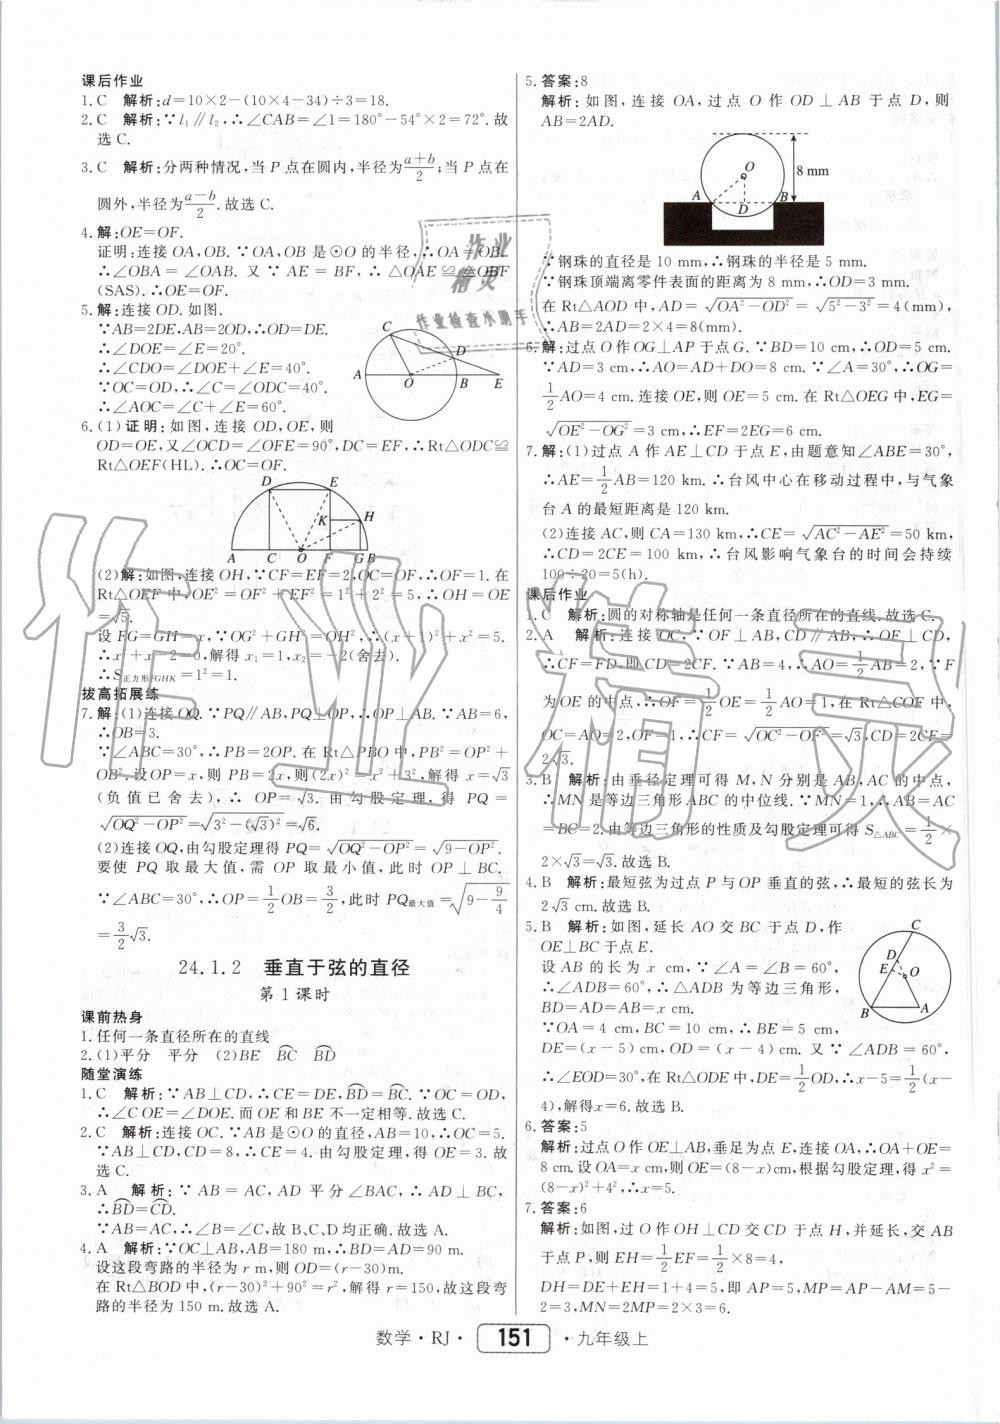 课后作业
1. C 解析:d=10×2-(10×4-34)÷3=18.
2. C 解析:∵l₁∥l₂,∴∠CAB=∠1=180°-54°×2=72°.故
选C.
3. C 解析:分两种情况,当P点在圆内,半径为(a+b)/2;当P点在
圆外,半径为(a-b)/2.故选C.
4. 解:OE=OF.
证明:连接OA,OB.∵OA,OB是⊙O的半径,∴OA=OB.
∴∠OBA=∠OAB.又∵AE=BF,∴△OAE≌△OBF
(SAS).∴OE=OF.
5. 解:连接OD.如图.
∵AB=2DE,AB=2OD,∴OD=DE.
∴∠DOE=∠E=20°.
∴∠CDO=∠DOE+∠E=40°.
∵OC=OD,∴∠C=∠ODC=40°.
∴∠AOC=∠C+∠E=60°.
C
D
A
O
B
E
6. (1)证明:如图,连接OD,OE,则
OD=OE,又∠OCD=∠OFE=90°,DC=EF,∴Rt△ODC≌
Rt△OEF(HL).∴OC=OF.
D E
K H
A C O F G B
(2)解:如图,连接OH,∵CF=EF=2,OC=OF,∴OF=1.在
Rt△OEF中,OE²=OF²+EF²=1²+2²=5,∴OH=OE
=√5.
设FG=GH=x,∵OG²+GH²=OH²,∴(x+1)²+x²=5.
∴x²+x-2=0,解得x₁=1,x₂=-2(舍去).
∴S正方形FGHK=1²=1.
拔高拓展练
7. 解:(1)连接OQ.∵PQ∥AB,PQ⊥OP,∴OP⊥AB.∵AB=6,
∴OB=3.
∵∠ABC=30°,∴PB=2OP.在Rt△PBO中,PB²=OP²+
OB².设OP=x,则PB=2x,则(2x)²=x²+3².解得x=√3
(负值已舍去),∴OP=√3.由勾股定理,得PQ=
√(OQ²-OP²)=√(3²-(√3)²)=√6.
(2)连接OQ,由勾股定理得PQ=√(OQ²-OP²)=√(9-OP²).
要使PQ取最大值,需OP取最小值,此时OP⊥BC.
∵∠ABC=30°,∴OP=1/2OB=3/2,此时PQ最大值=√(9-9/4)
=3/2√3.
24.1.2 垂直于弦的直径
第1课时
课前热身
1. 任何一条直径所在的直线
2. (1)平分 平分 (2)BE BC⌒ BD⌒
随堂演练
1. C 解析:∵AB⊥CD,∴CE=DE,BD⌒=BC⌒.∵OC=OD,
∴∠COE=∠DOE.而OE和BE不一定相等.故选C.
2. C 解析:连接OC.∵AB是⊙O的直径,AB=10,∴OC=5.
∵AB⊥CD,CD=8,∴CE=4.由勾股定理,得OE=3.故
选C.
3. A 解析:∵AB=AC,AD平分∠BAC,∴AD⊥BC,
∴BD⌒=CD⌒.
∵AB=AC,∴∠B=∠C,故B、C、D均正确.故选A.
4. A 解析:∵OC⊥AB,AB=180 m,∴BD=AD=90 m.
设这段弯路的半径为r m,则OD=(r-30)m.
在Rt△BOD中,(r-30)²+90²=r²,解得r=150,故这段弯
路的半径为150 m.故选A.
5. 答案:8
解析:如图,连接OA,过点O作OD⊥AB于点D,则
AB=2AD.
O
8 mm
A
D
B
∵钢珠的直径是10 mm,∴钢珠的半径是5 mm.
∵钢珠顶端离零件表面的距离为8 mm,∴OD=3 mm.
在Rt△AOD中,AD=√(OA²-OD²)=√(5²-3²)=4(mm),
∴AB=2AD=2×4=8(mm).
6. 解:过点O作OG⊥AP于点G.∵BD=10 cm,∴OD=5 cm.
∵AD=3 cm,∴AO=AD+DO=8 cm.∵∠A=30°,∴OG=
1/2AO=4 cm.连接OE,则OE=5 cm.在Rt△OEG中,EG=
√(OE²-OG²)=3 cm,∴EF=2EG=6 cm.
7. 解:(1)过点A作AE⊥CD于点E,由题意知∠ABE=30°,
∴AE=1/2AB=120 km.∴台风中心在移动过程中,与气象
台A的最短距离是120 km.
(2)连接AC,则CA=130 km,∴CE=√(AC²-AE²)=50 km,
∴CD=2CE=100 km,∴台风影响气象台的时间会持续
100÷20=5(h).
课后作业
1. C 解析:圆的对称轴是任何一条直径所在的直线.故选C.
2. A 解析:连接OC.∵OF⊥AB,CD∥AB,∴OF⊥CD,
∴CF=FD.即CD=2CF.∵AB=4,∴AO=1/2AB=2,∵F
为OE的中点,∴OF=1/2OE=1/2AO.∴在Rt△COF中,
OC=AO=2,OF=1,∴CF=√(OC²-OF²)=√3,CD=2CF=
2√3.
3. B 解析:由垂径定理可得M,N分别是AB,AC的中点,
∴MN是等边三角形ABC的中位线.∵MN=1,∴AB=AC
=BC=2.由等边三角形的性质及勾股定理可得S△ABC=1/2×
2×√3=√3.故选B.
4. B 解析:最短弦为过点P与OP垂直的弦,∴最短的弦长为
2√3 cm.故选B.
5. B 解析:如图,延长AO交BC于点D,作
OE⊥BC于点E.
设AB的长为x cm,∵∠A=∠B=60°,
∴∠ADB=60°.∴△ADB为等边三角形,
BD=AD=AB=x cm.
∵OA=4 cm,BC=10 cm,∴BE=5 cm,
DE=(x-5)cm,OD=(x-4)cm.又∵∠ADB=60°,
∴∠EOD=30°.在Rt△ODE中,DE=1/2OD,∴x-5=1/2(x-
4),解得x=6.故选B.
C
D
E
O
B
A
6. 答案:5
解析:过点O作OE⊥AB,垂足为点E,连接OA,∴OA+OE=
8 cm.设OA=x cm,则OE=(8-x)cm,根据勾股定理,得x²=
(8-x)²+4²,∴x=5.
7. 答案:6
解析:如图,过O作OH⊥CD交CD于点H,并延长,交AB
于点P,则EH=1/2EF=1/2×8=4,
DH=DE+EH=1+4=5,即AP=5,MP=AP-AM=5-
2=3,MN=2MP=2×3=6.
作业
精灵
作业检查小助手
作业精灵
数学·RJ· 151 ·九年级上